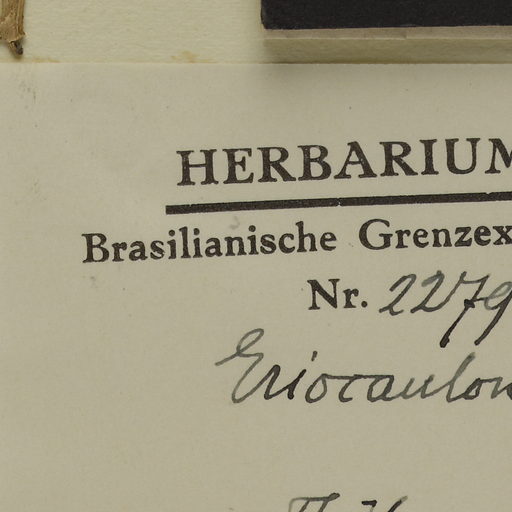 HERBARIUM
Brasilianische Grenzex
Nr. 2279
Eriocaulon